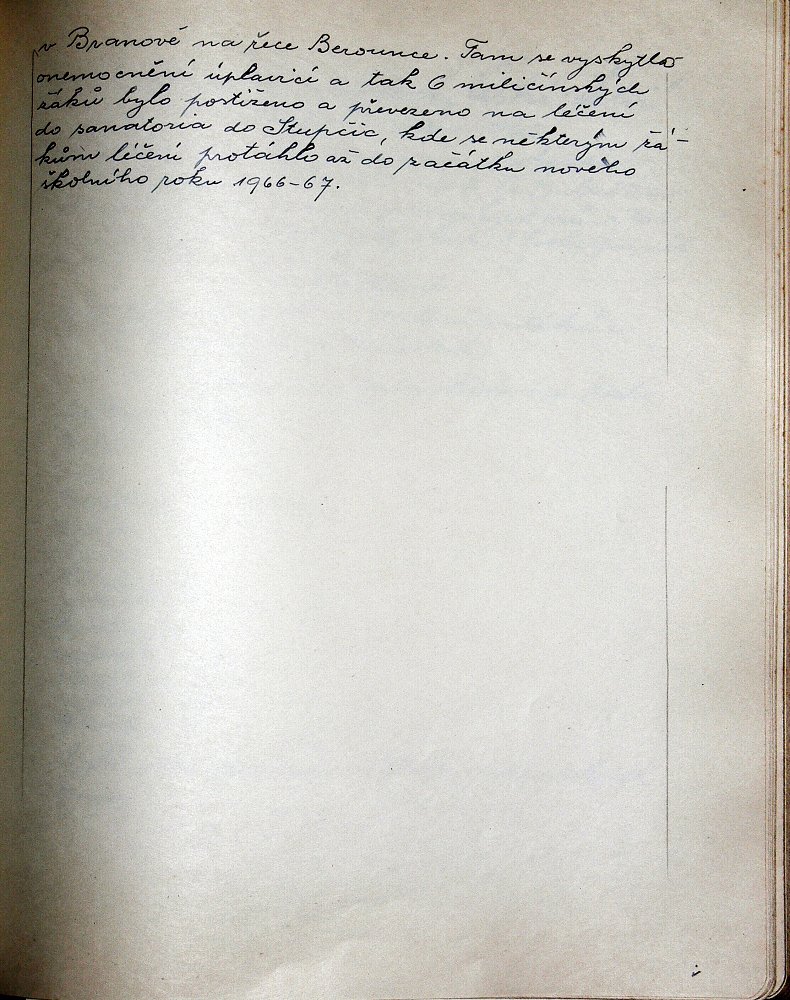 v Branově na řece Berounce. Tam se vyskytlo
onemocnění úplavicí a tak 6 miličínských
žáků bylo postiženo a převezeno na léčení
do sanatoria do Stupčic, kde se některým žá-
kům léčení protáhlo až do začátku nového
školního roku 1966-67.